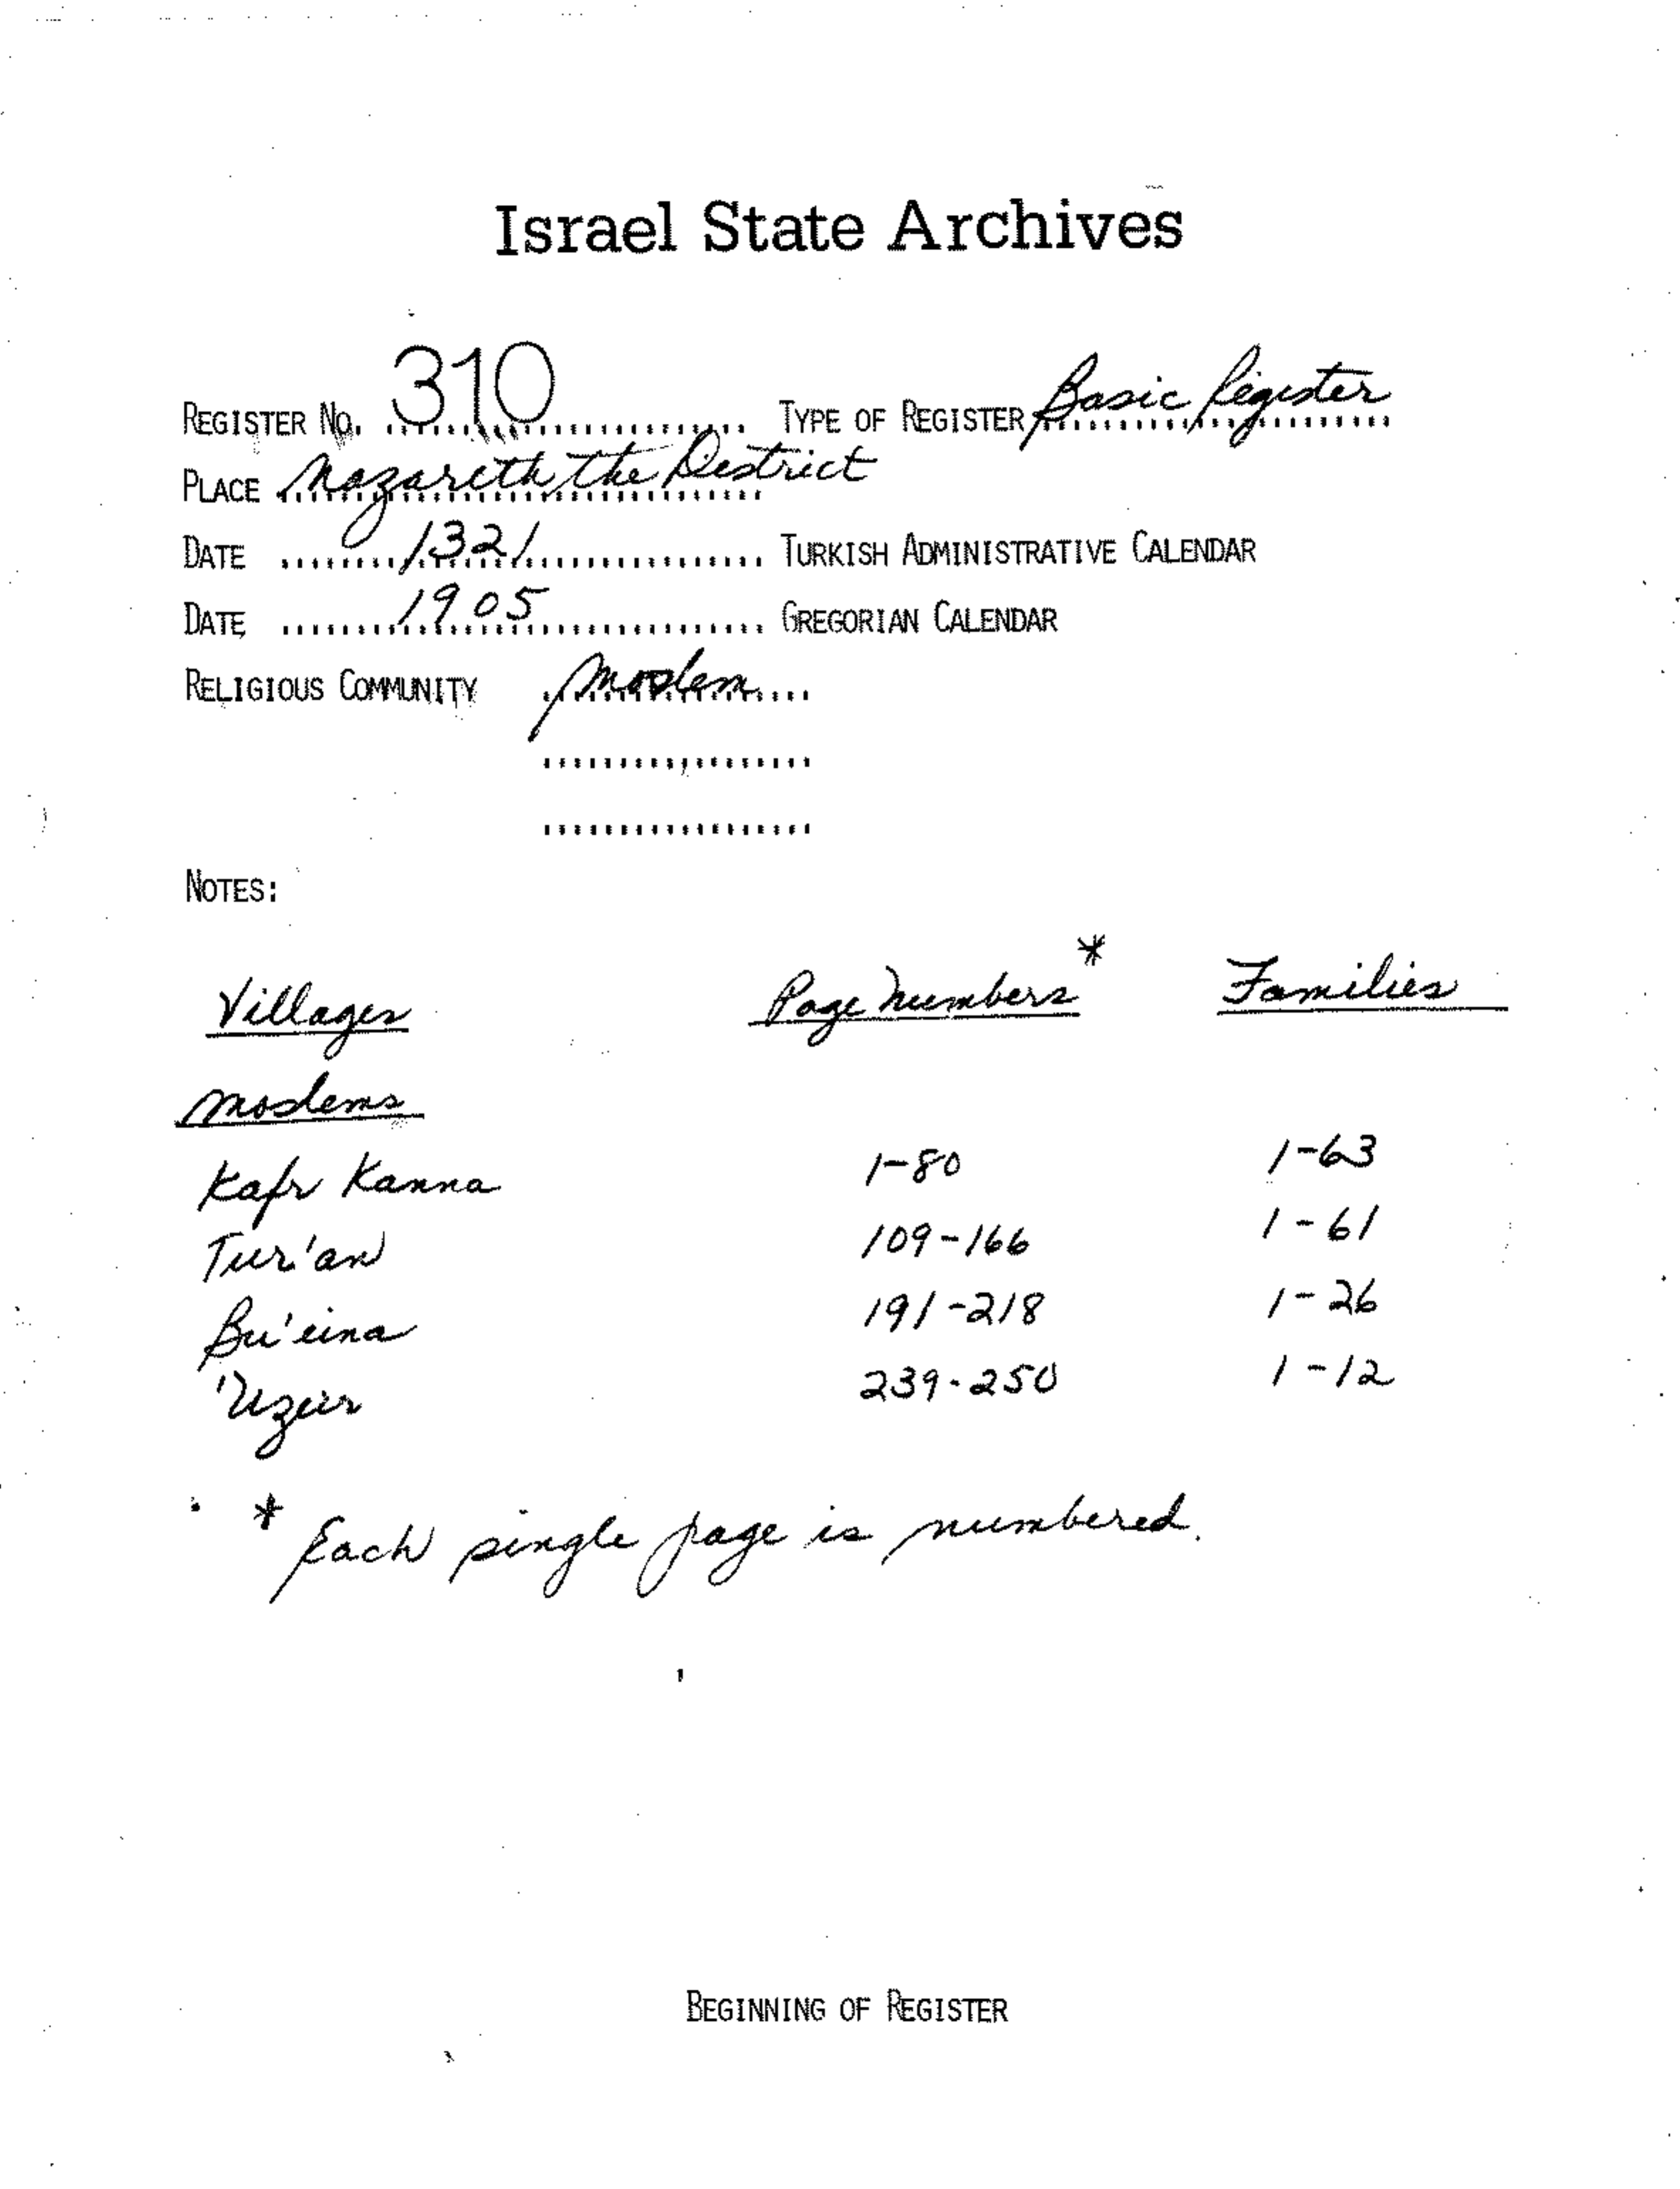 Israel State Archives
REGISTER NO. 310 TYPE OF REGISTER Basic Register
PLACE Nazareth the District
DATE 1321 TURKISH ADMINISTRATIVE CALENDAR
DATE 1905 GREGORIAN CALENDAR
RELIGIOUS COMMUNITY Moslem
NOTES:
Villages Page Numbers* Families
Moslems
Kafr Kanna 1-80 1-63
Tur'an 109-166 1-61
Bu'eina 191-218 1-26
'Uzeir 239-250 1-12
* Each single page is numbered.
BEGINNING OF REGISTER